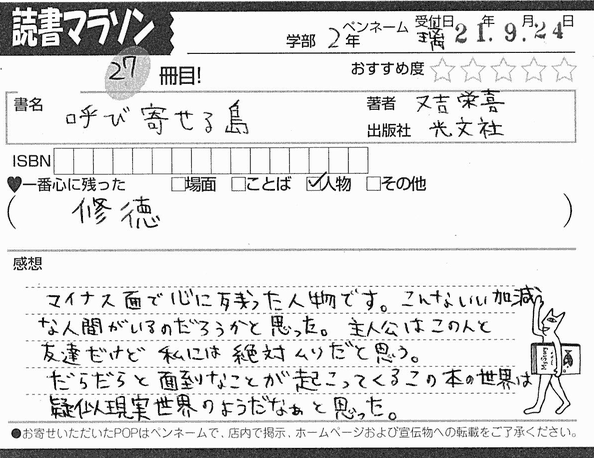 読書マラソン
学部 2年 ペンネーム 瑞 受付日 21年9月24日
27冊目!
おすすめ度 ☆☆☆☆☆
書名 呼び寄せる島
著者 又吉栄喜
出版社 光文社
ISBN
♥一番心に残った □場面 □ことば ☑人物 □その他
( 修徳 )
感想
マイナス面で心に残った人物です。こんないい加減
な人間がいるのだろうかと思った。主人公はこの人と
友達だけど 私には絶対ムリだと思う。
だらだらと面倒なことが起こってくるこの本の世界は
疑似現実世界のようだなぁと思った。
●お寄せいただいたPOPはペンネームで、店内で掲示、ホームページおよび宣伝物への転載をご了承ください。